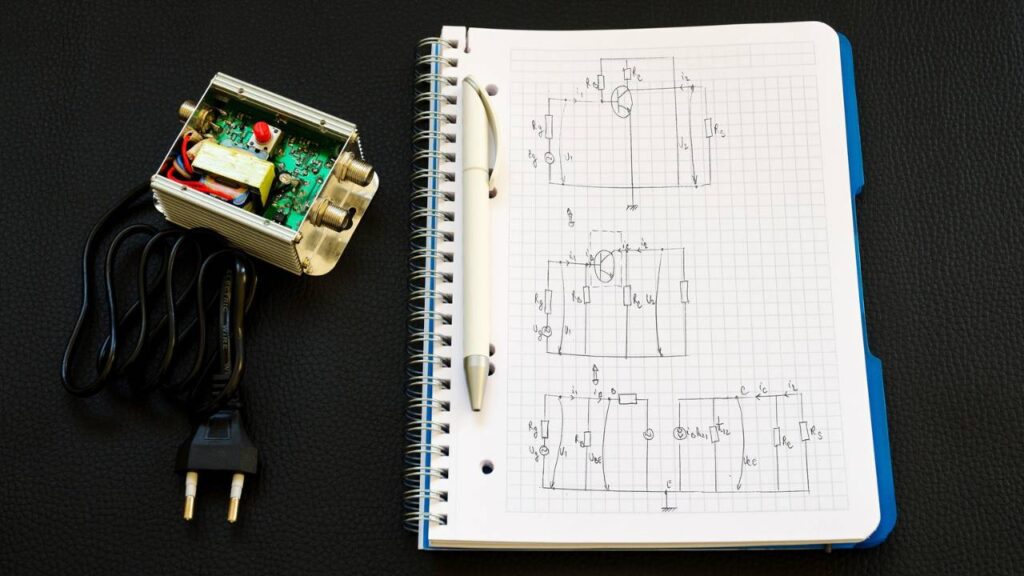 R_B R_C i_2
i_1
R_g R_S
U_1 U_2
i_1 i_2
R_g R_B R_C U_2
U_g U_1
i_1 i_B B C i_C i_2
R_g R_B i_B h_21 R_C R_S
U_g U_1 U_BE U_CE
E